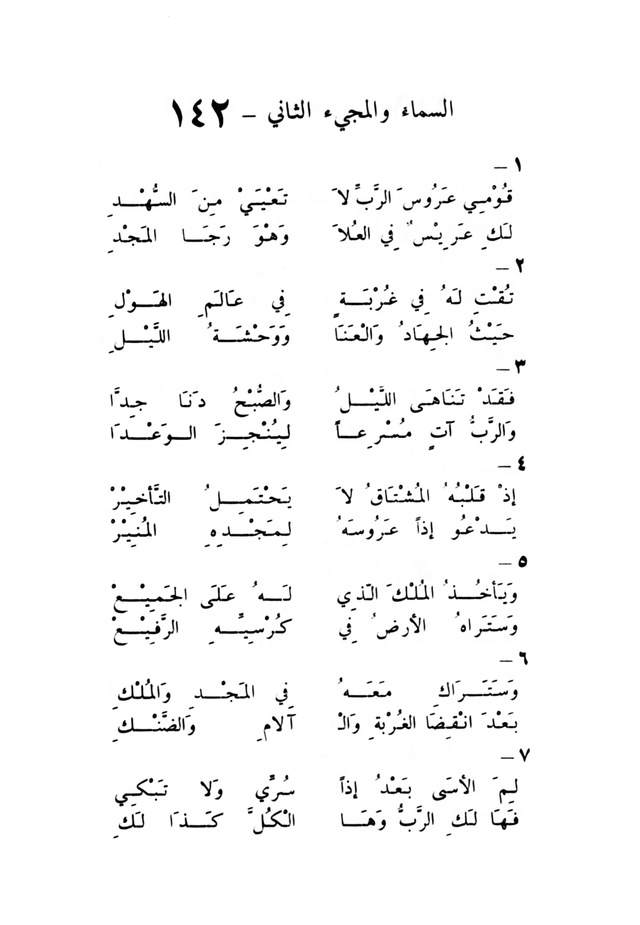 السماء والمجيء الثاني - ١٤٢
١ -
قُوْمِي عَرُوسَ الرَّبِّ لاَ تَعْيَيْ مِنَ السُّهْدِ
لَكِ عَرِيْسٌ فِي العُلاَ وَهْوَ رَجَا المَجْدِ
٢ -
تُقْتِ لَهُ فِي غُرْبَةٍ فِي عَالَمِ الهَوْلِ
حَيْثُ الجِهَادُ وَالْعَنَا وَوَحْشَةُ اللَّيْلِ
٣ -
فَقَدْ تَنَاهَى اللَّيْلُ وَالصُّبْحُ دَنَا جِدَّا
وَالرَّبُّ آتٍ مُسْرِعاً لِيُنْجِزَ الوَعْدَا
٤ -
إذْ قَلْبُهُ المُشْتَاقُ لاَ يَحْتَمِلُ التَّأخِيْرْ
يَدْعُو إذاً عَرُوسَهُ لِمَجْدِهِ المُنِيْرْ
٥ -
وَيَأخُذُ المُلْكَ الَّذِي لَهُ عَلَى الجَمِيْعْ
وَسَتَرَاهُ الأرضُ فِي كُرْسِيِّهِ الرَّفِيْعْ
٦ -
وَسَتَرَاكِ مَعَهُ فِي المَجْدِ وَالمُلْكِ
بَعْدَ انْقِضَا الغُرْبةِ وَالْ آلامِ وَالضَّنْكِ
٧ -
لِمَ الأسَى بَعْدُ إذاً سُرِّي وَلا تَبْكِي
فَهَا لَكِ الرَّبُّ وَهَا الْكُلَّ كَذَا لَكِ